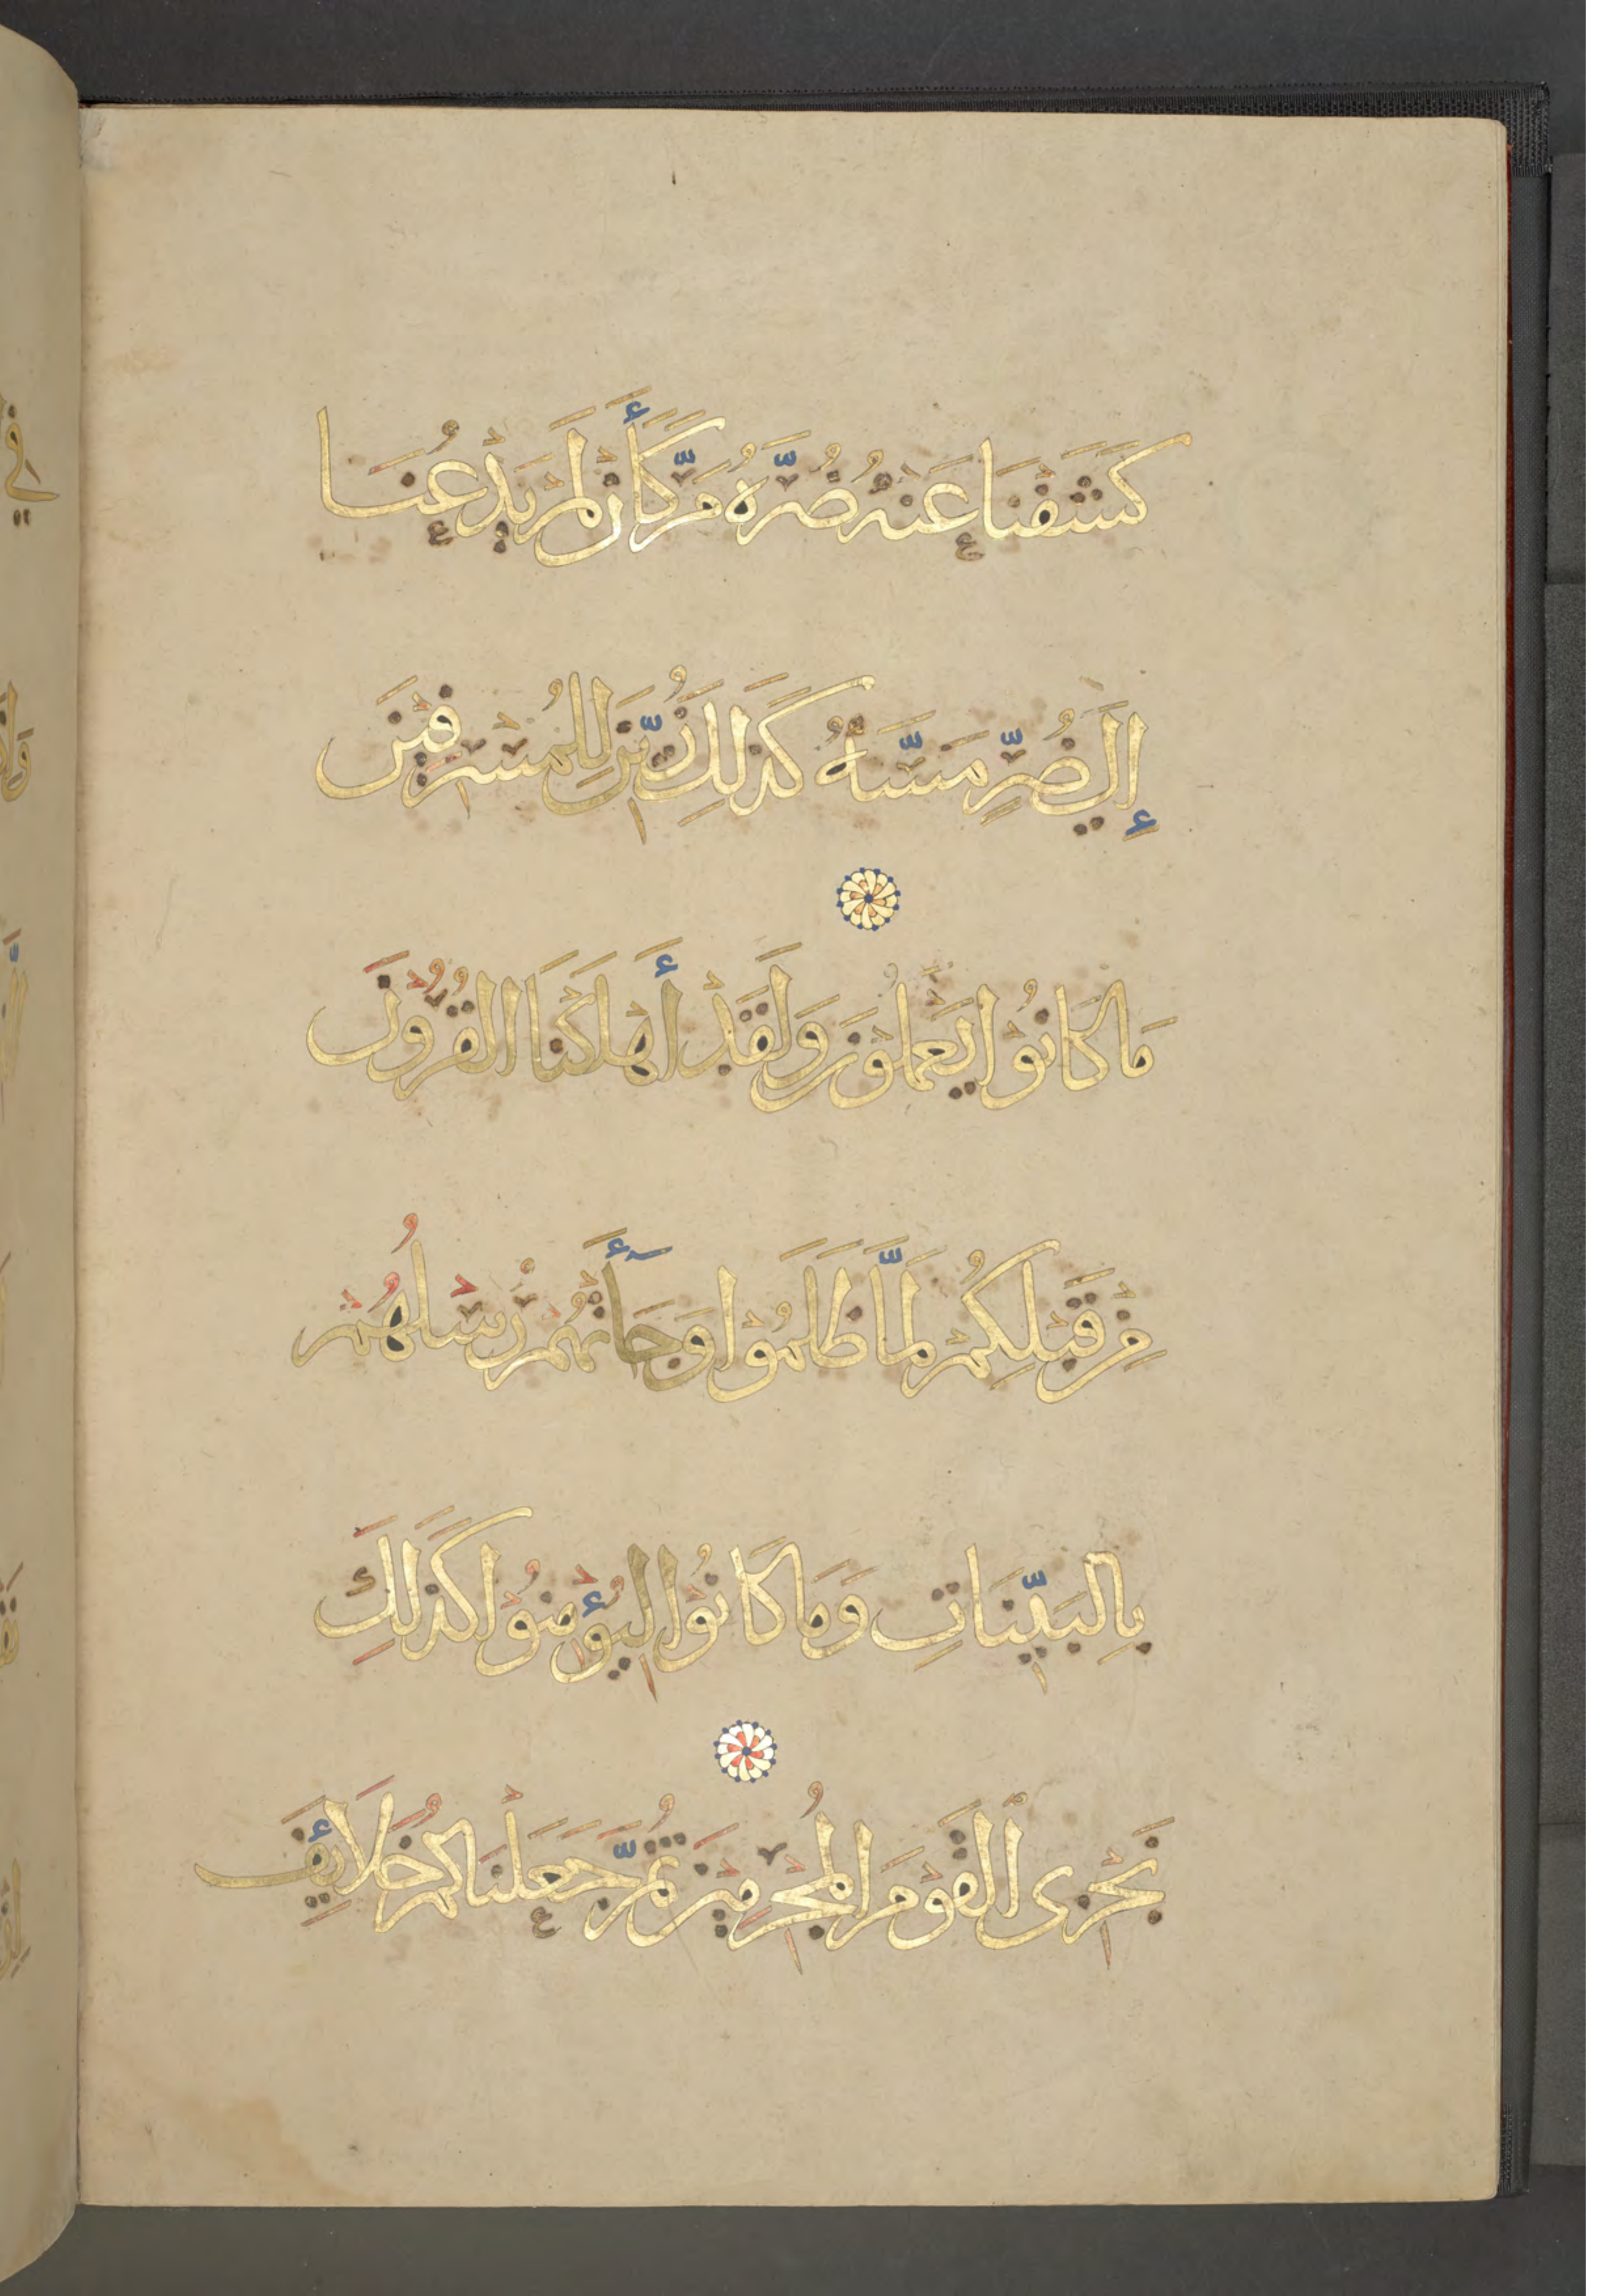 كَشَفْنَا عَنْهُ ضُرَّهُ مَرَّ كَأَنْ لَمْ يَدْعُنَا
إِلَى ضُرٍّ مَسَّهُ كَذَلِكَ زُيِّنَ لِلْمُسْرِفِيْنَ
مَا كَانُوْا يَعْمَلُوْنَ وَلَقَدْ أَهْلَكْنَا الْقُرُوْنَ
مِنْ قَبْلِكُمْ لَمَّا ظَلَمُوْا وَجَآءَتْهُمْ رُسْلُهُمْ
بِالْبَيِّنَاتِ وَمَا كَانُوْا لِيُؤْمِنُوْا كَذَلِكَ
نَجْزِى ٱلْقَوْمَ الْمُجْرِمِيْنَ ثُمَّ جَعَلْنَاكُمْ خَلَائِفَ